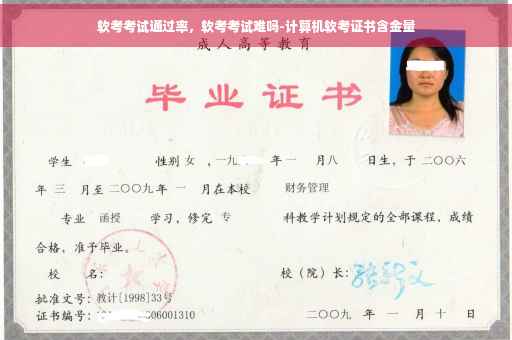 软考考试通过率，软考考试难吗-计算机软考证书含金量
成人高等教育
毕业证书
学生 性别 女 ，一九 年 一 月八 日生，于 二〇〇六
年 三 月至 二〇〇九 年 一 月在本校 财务管理
专业 函授 学习，修完 专 科教学计划规定的全部课程，成绩
合格，准予毕业。
校 名： 校（院）长：
批准文号：教计[1998]33号
证书编号： 06001310 二〇〇九 年 一 月 十 日